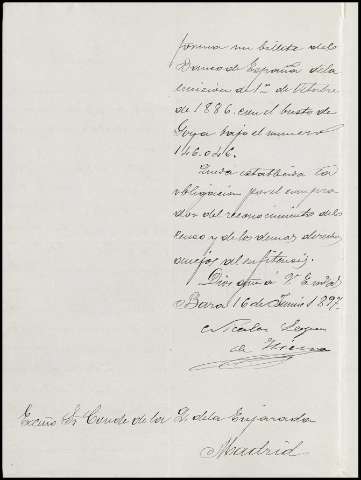 forma un billete del
Banco de España de la
emisión de 1º de Octubre
de 1886 con el busto de
Goya bajo el numero
146.046.
Queda establecida la
obligacion por el compra
dor del reconocimiento del
censo y de los demas derechos
anejos al enfiteusis.
Dios gue á V. E. m. a.
16 de Junio 1897
Nicolas
de
Excmo Sr Conde de la Q. de la Enjarada
Madrid